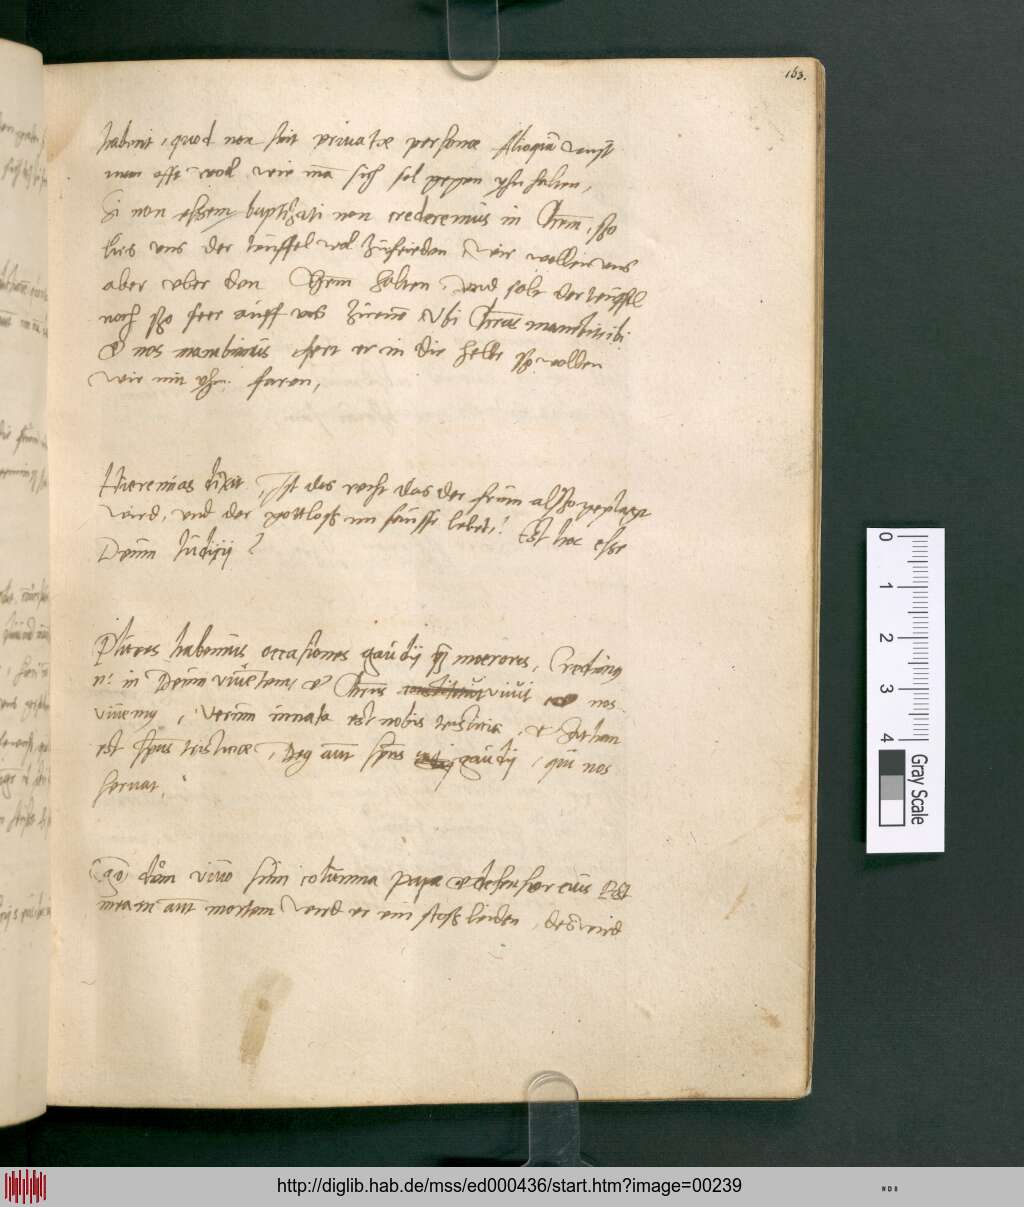 163.
habent, quod non sint privatae personae Alioqui
man offt wol wie mã sich sol gegen yhn halten,
Si non essem9 baptisati non crederemus in Chrm, sso
lies uns der teuffel wol zufrieden Wir wollen uns
aber uber den Chrm halten, und solt der teuffel
noch sso seer auff uns zürnen Ubi Chrus manebit ibi
& nos manebimus, fert er in die helle sso wollen
wir mit yhm faren,
Hieremias dixit, Ist das recht das der frum alsso geplagt
wird, und der gottloss im seusse lebet! Est hoc esse
Deum Iudicij?
Plures habemus occasiones gaudij qz moeroris, Credim9
n: in Deum viventem, & Chrus vivit nos
vivem9, Verum innata est nobis tristicia, & Sathan
est spus tristiciae, De9 aut spus gaudij, qui nos
servat.
Ego dum vivo sum columna papae & defensor eius Post
meam aut mortem wird er ein stoss leiden, den wird
http://diglib.hab.de/mss/ed000436/start.htm?image=00239
0
1
2
3
4
Gray Scale